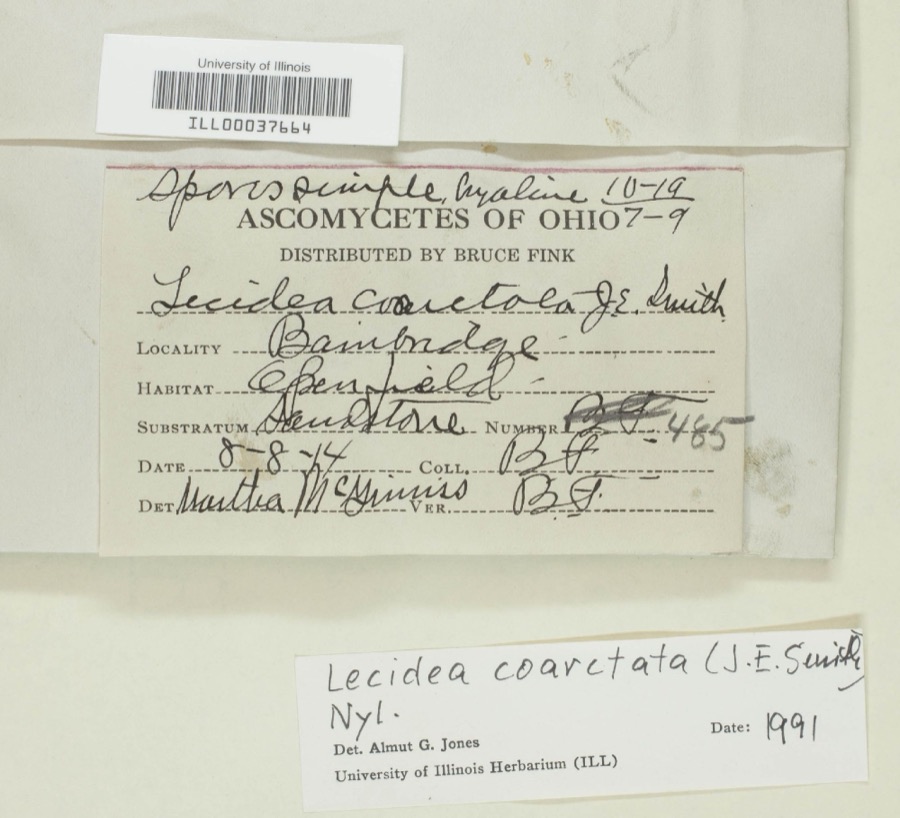 University of Illinois
ILL00037664
Spores simple, hyaline 10-19
7-9
ASCOMYCETES OF OHIO
DISTRIBUTED BY BRUCE FINK
Lecidea coarctata J.E. Smith
LOCALITY Bainbridge
HABITAT Open field
SUBSTRATUM Sandstone NUMBER 485
DATE 8-8-14 COLL. B F
DET Martha McGinniss VER. B.F.
Lecidea coarctata (J.E. Smith)
Nyl.
Det. Almut G. Jones Date: 1991
University of Illinois Herbarium (ILL)